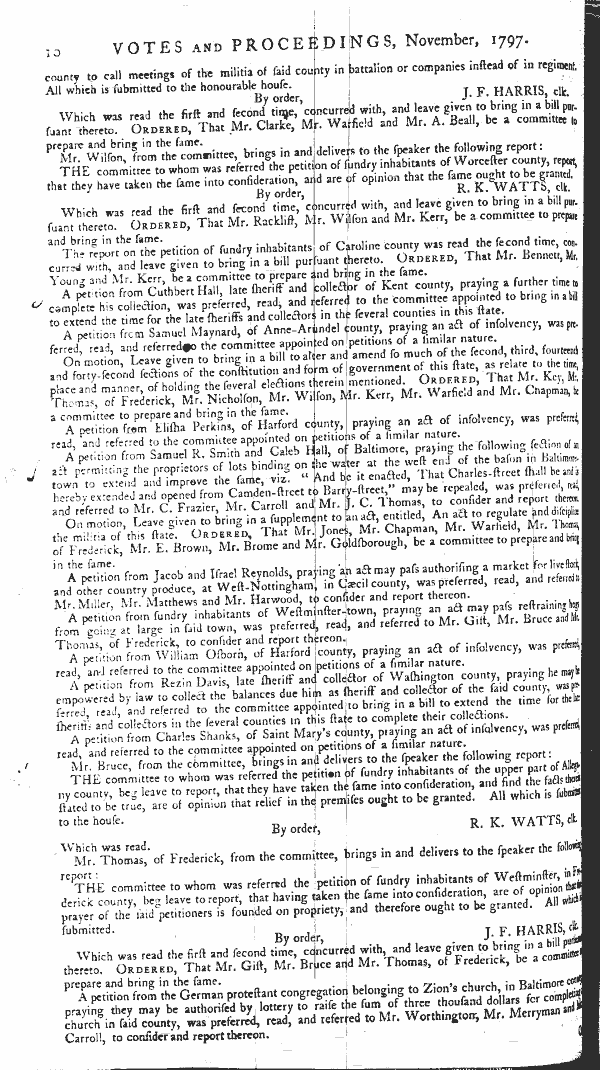 10 VOTES AND PROCEEDINGS, November, 1797.
county to call meetings of the militia of ſaid county in battalion or companies inſtead of in regiment.
All which is ſubmitted to the honourable houſe.
By order, J. F. HARRIS, clk.
Which was read the firſt and ſecond time, concurred with, and leave given to bring in a bill pur-
ſuant thereto. ORDERED, That Mr. Clarke, Mr. Warfield and Mr. A. Beall, be a committee to
prepare and bring in the ſame.
Mr. Wilſon, from the committee, brings in and delivers to the ſpeaker the following report:
THE committee to whom was referred the petition of ſundry inhabitants of Worceſter county, report,
that they have taken the ſame into conſideration, and are of opinion that the ſame ought to be granted.
By order, R. K. WATTS, clk.
Which was read the firſt and ſecond time, concurred with, and leave given to bring in a bill pur-
ſuant thereto. ORDERED, That Mr. Rackliff, Mr. Wilſon and Mr. Kerr, be a committee to prepare
and bring in the ſame.
The report on the petition of ſundry inhabitants of Caroline county was read the ſecond time, con-
curred with, and leave given to bring in a bill purſuant thereto. ORDERED, That Mr. Bennett, Mr.
Young and Mr. Kerr, be a committee to prepare and bring in the ſame.
A petition from Cuthbert Hall, late ſheriff and collector of Kent county, praying a further time to
complete his collection, was preferred, read, and referred to the committee appointed to bring in a bill
to extend the time for the late ſheriffs and collectors in the ſeveral counties in this ſtate.
A petition from Samuel Maynard, of Anne-Arundel county, praying an act of inſolvency, was pre-
ferred, read, and referred to the committee appointed on petitions of a ſimilar nature.
On motion, Leave given to bring in a bill to alter and amend ſo much of the ſecond, third, fourteenth
and forty-ſecond ſections of the conſtitution and form of government of this ſtate, as relate to the time,
place and manner, of holding the ſeveral elections therein mentioned. ORDERED, That Mr. Key, Mr.
Thomas, of Frederick, Mr. Nicholſon, Mr. Wilſon, Mr. Kerr, Mr. Warfield and Mr. Chapman, be
a committee to prepare and bring in the ſame.
A petition from Eliſha Perkins, of Harford county, praying an act of inſolvency, was preferred,
read, and referred to the committee appointed on petitions of a ſimilar nature.
A petition from Samuel R. Smith and Caleb Hall, of Baltimore, praying the following ſection of an
act permitting the proprietors of lots binding on the water at the weſt end of the baſon in Baltimore-
town to extend and improve the ſame, viz. "And be it enacted, That Charles-ſtreet ſhall be and is
hereby extended and opened from Camden-ſtreet to Barry-ſtreet," may be repealed, was preferred, read,
and referred to Mr. C. Frazier, Mr. Carroll and Mr. J. C. Thomas, to conſider and report thereon.
On motion, Leave given to bring in a ſupplement to an act, entitled, An act to regulate and diſcipline
the militia of this ſtate. ORDERED, That Mr. Jones, Mr. Chapman, Mr. Warfield, Mr. Thomas,
of Frederick, Mr. E. Brown, Mr. Brome and Mr. Goldſborough, be a committee to prepare and bring
in the ſame.
A petition from Jacob and Iſrael Reynolds, praying an act may paſs authoriſing a market for live ſtock,
and other country produce, at Weſt-Nottingham, in Cæcil county, was preferred, read, and referred to
Mr. Miller, Mr. Matthews and Mr. Harwood, to conſider and report thereon.
A petition from ſundry inhabitants of Weſtminſter-town, praying an act may paſs reſtraining hogs
from going at large in ſaid town, was preferred, read, and referred to Mr. Giſt, Mr. Bruce and Mr.
Thomas, of Frederick, to conſider and report thereon.
A petition from William Oſborn, of Harford county, praying an act of inſolvency, was preferred,
read, and referred to the committee appointed on petitions of a ſimilar nature.
A petition from Rezin Davis, late ſheriff and collector of Waſhington county, praying he may be
empowered by law to collect the balances due him as ſheriff and collector of the ſaid county, was pre-
ferred, read, and referred to the committee appointed to bring in a bill to extend the time for the late
ſheriffs and collectors in the ſeveral counties in this ſtate to complete their collections.
A petition from Charles Shanks, of Saint Mary's county, praying an act of inſolvency, was preferred,
read, and referred to the committee appointed on petitions of a ſimilar nature.
Mr. Bruce, from the committee, brings in and delivers to the ſpeaker the following report:
THE committee to whom was referred the petition of ſundry inhabitants of the upper part of Allega-
ny county, beg leave to report, that they have taken the ſame into conſideration, and find the facts therein
ſtated to be true, are of opinion that relief in the premiſes ought to be granted. All which is ſubmitted
to the houſe.
By order, R. K. WATTS, clk.
Which was read.
Mr. Thomas, of Frederick, from the committee, brings in and delivers to the ſpeaker the following
report:
THE committee to whom was referred the petition of ſundry inhabitants of Weſtminſter, in Fre-
derick county, beg leave to report, that having taken the ſame into conſideration, are of opinion that the
prayer of the ſaid petitioners is founded on propriety, and therefore ought to be granted. All which
ſubmitted.
By order, J. F. HARRIS, clk.
Which was read the firſt and ſecond time, concurred with, and leave given to bring in a bill purſuant
thereto. ORDERED, That Mr. Giſt, Mr. Bruce and Mr. Thomas, of Frederick, be a committee
prepare and bring in the ſame.
A petition from the German proteſtant congregation belonging to Zion's church, in Baltimore county
praying they may be authoriſed by lottery to raiſe the ſum of three thouſand dollars for completing
church in ſaid county, was preferred, read, and referred to Mr. Worthington, Mr. Merryman and
Carroll, to conſider and report thereon.